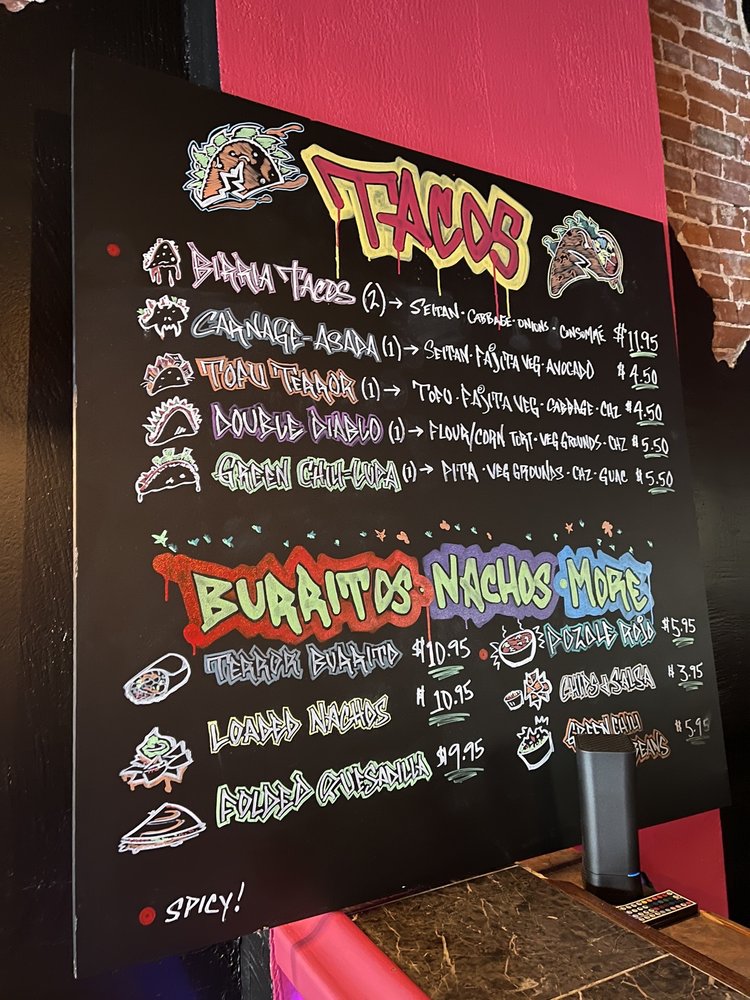 TACOS
BIRRIA TACOS (2) → SEITAN · CABBAGE · ONIONS · CONSOMME $11.95
CARNAGE-ASADA (1) → SEITAN · FAJITA VEG · AVOCADO $4.50
TOFU TERROR (1) → TOFU · FAJITA VEG · CABBAGE · CHZ $4.50
DOUBLE DIABLO (1) → FLOUR/CORN TORT · VEG GROUNDS · CHZ $5.50
GREEN CHILI-LUPA (1) → PITA · VEG GROUNDS · CHZ · GUAC $5.50
BURRITOS · NACHOS · MORE
TERROR BURRITO $10.95
LOADED NACHOS $10.95
FOLDED QUESADILLA $9.95
POZOLE ROJO $5.95
CHIPS & SALSA $3.95
GREEN CHILI $5.95
SPICY!